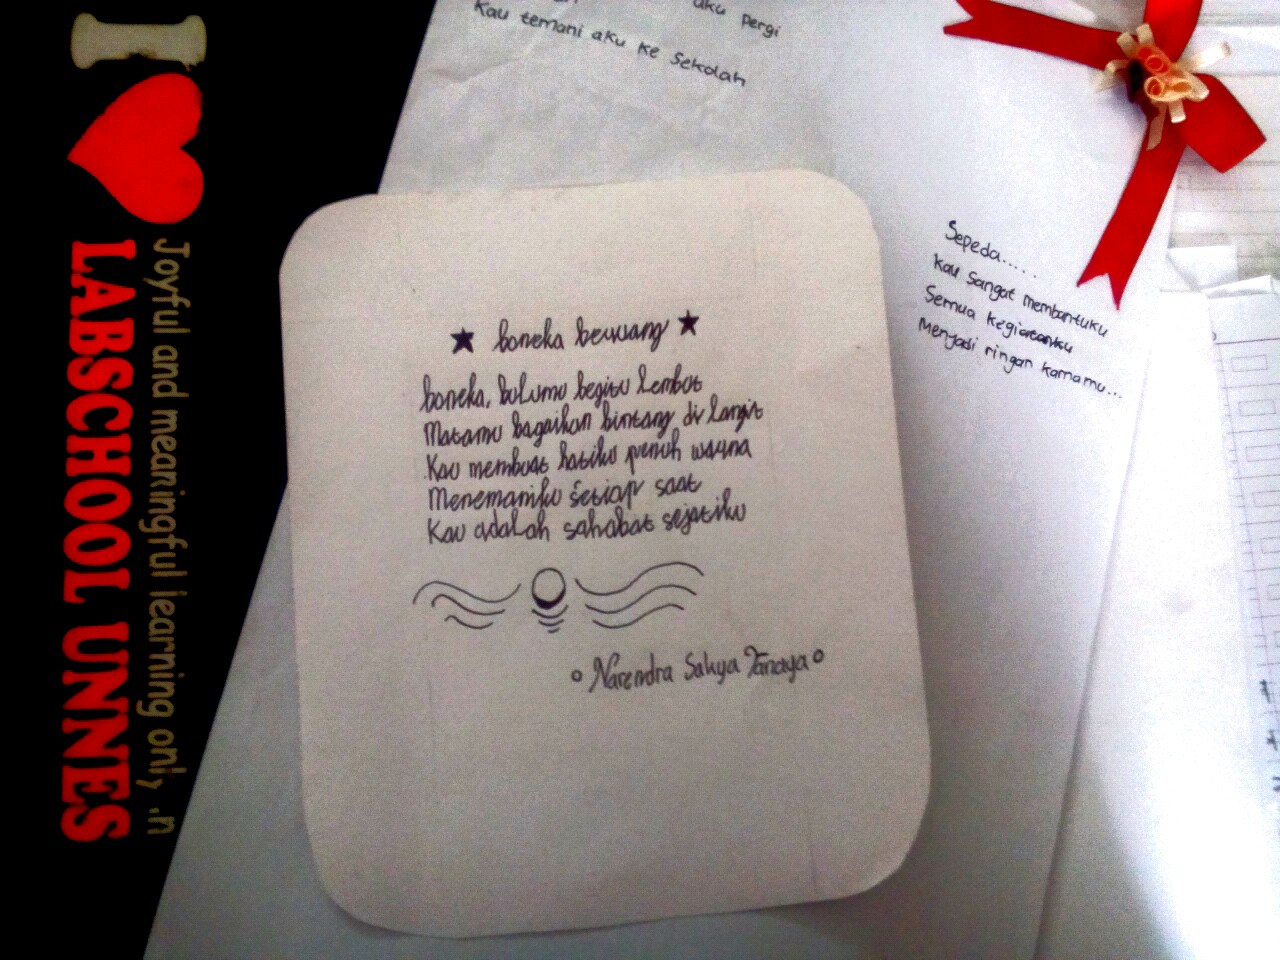 I
LABSCHOOL UNNES
Joyful and meaningful learning only
aku pergi
Kau temani aku ke Sekolah
Sepeda.....
Kau Sangat membantuku
Semua Kegiatanku
Menjadi ringan karnamu...
boneka beruang
boneka, bulumu begitu lembut
Matamu bagaikan bintang di langit
Kau membuat hatiku penuh warna
Menemaniku setiap saat
Kau adalah sahabat sejatiku
Narendra Satya Tanaya